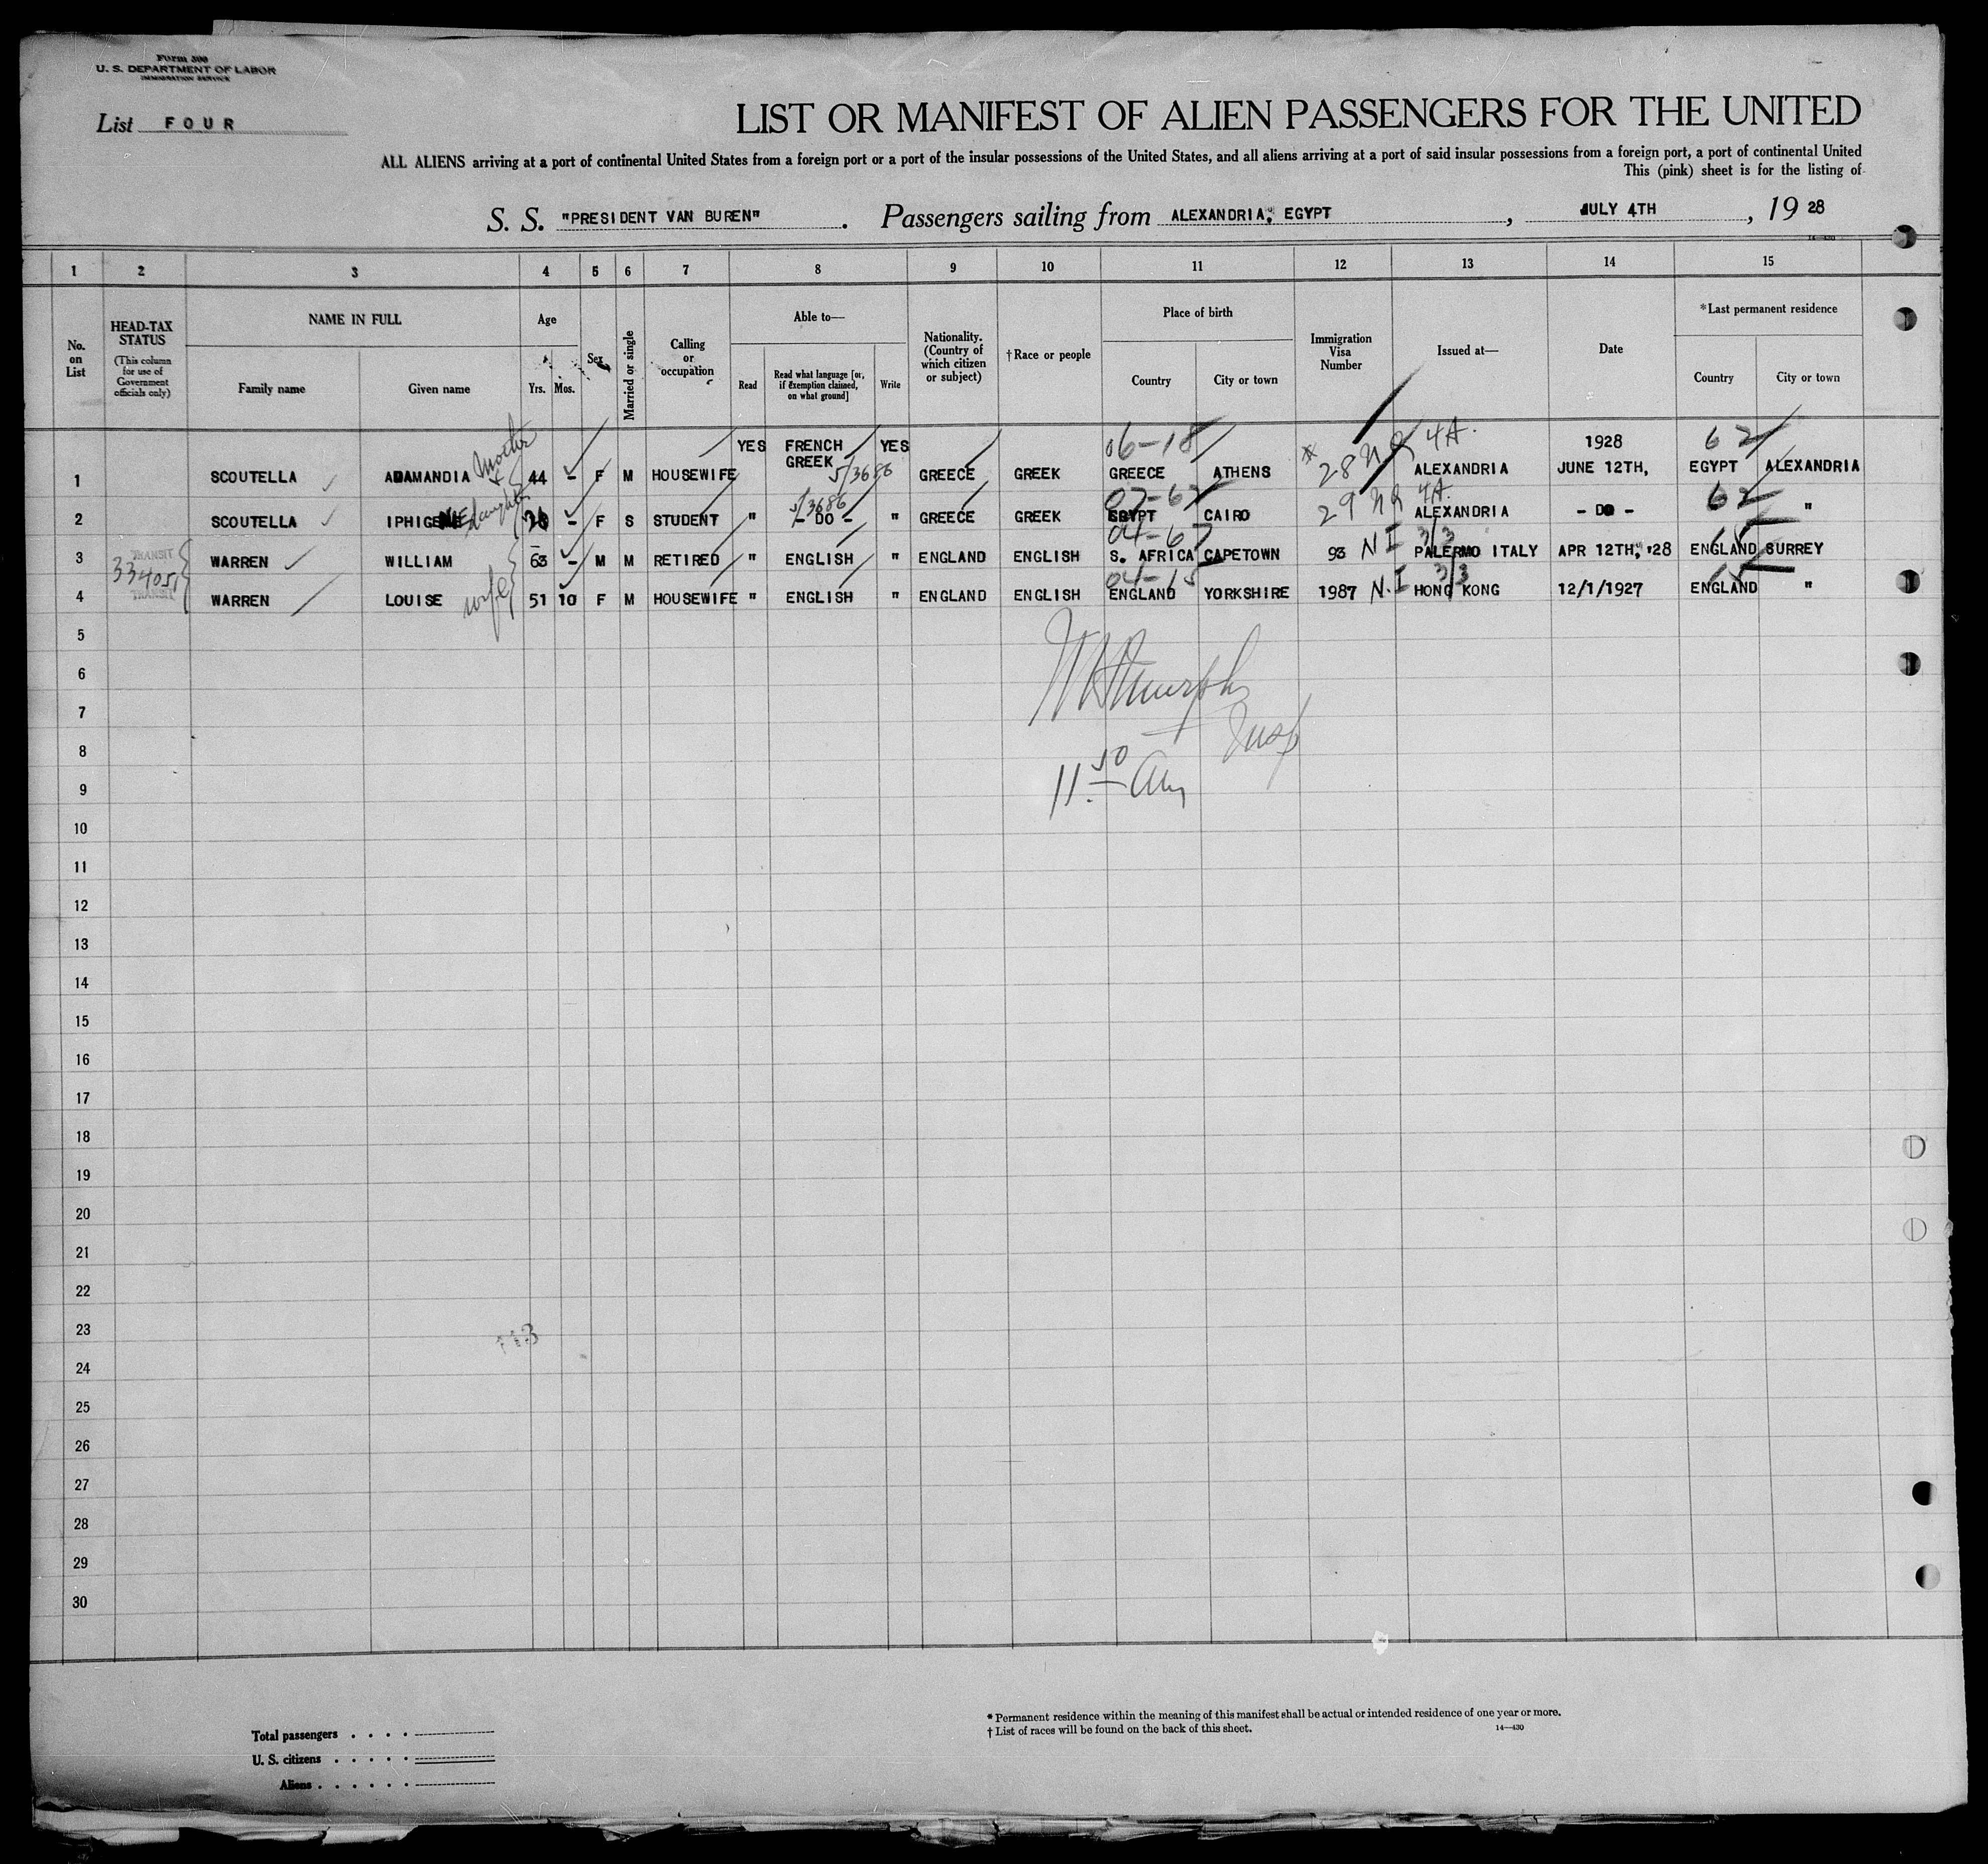 Form 500
U. S. DEPARTMENT OF LABOR
IMMIGRATION SERVICE
List FOUR
LIST OR MANIFEST OF ALIEN PASSENGERS FOR THE UNITED
ALL ALIENS arriving at a port of continental United States from a foreign port or a port of the insular possessions of the United States, and all aliens arriving at a port of said insular possessions from a foreign port, a port of continental United
This (pink) sheet is for the listing of
S. S. "PRESIDENT VAN BUREN". Passengers sailing from ALEXANDRIA, EGYPT, JULY 4TH, 1928
14—430
1 2 3 4 5 6 7 8 9 10 11 12 13 14 15
No. on List
HEAD-TAX STATUS
(This column for use of Government officials only)
NAME IN FULL
Family name
Given name
Age
Yrs. Mos.
Sex
Married or single
Calling or occupation
Able to—
Read
Read what language [or, if exemption claimed, on what ground]
Write
Nationality. (Country of which citizen or subject)
†Race or people
Place of birth
Country
City or town
Immigration Visa Number
Issued at—
Date
*Last permanent residence
Country
City or town
06-18 4A. 1928 62
1 SCOUTELLA ADAMANDIA mother + 44 - F M HOUSEWIFE YES FRENCH GREEK 5/3686 YES GREECE GREEK GREECE ATHENS 28 NQ ALEXANDRIA JUNE 12TH, EGYPT ALEXANDRIA
5/3686 07-62 4A. 62
2 SCOUTELLA daughter - F S STUDENT " - DO - " GREECE GREEK EGYPT CAIRO 29 NQ ALEXANDRIA - DO - "
04-67 3/3 15
3 TRANSIT 33405 WARREN WILLIAM 63 - M M RETIRED " ENGLISH " ENGLAND ENGLISH S. AFRICA CAPETOWN 93 N I PALERMO ITALY APR 12TH, '28 ENGLAND SURREY
04-15 3/3 15
4 TRANSIT WARREN LOUISE wife 51 10 F M HOUSEWIFE " ENGLISH " ENGLAND ENGLISH ENGLAND YORKSHIRE 1987 N.I HONG KONG 12/1/1927 ENGLAND "
5
6
Murphy
7
Insp
8
11 50 am
9
10
11
12
13
14
15
16
17
18
19
20
21
22
23
113
24
25
26
27
28
29
30
Total passengers . . . .
U. S. citizens . . . . .
Aliens . . . . . .
* Permanent residence within the meaning of this manifest shall be actual or intended residence of one year or more.
† List of races will be found on the back of this sheet.
14—430